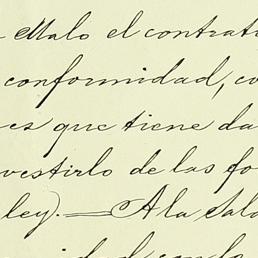 Malo el contrat
conformidad, co
es que tiene da
vestirlo de las fo
ley). — A la Sal